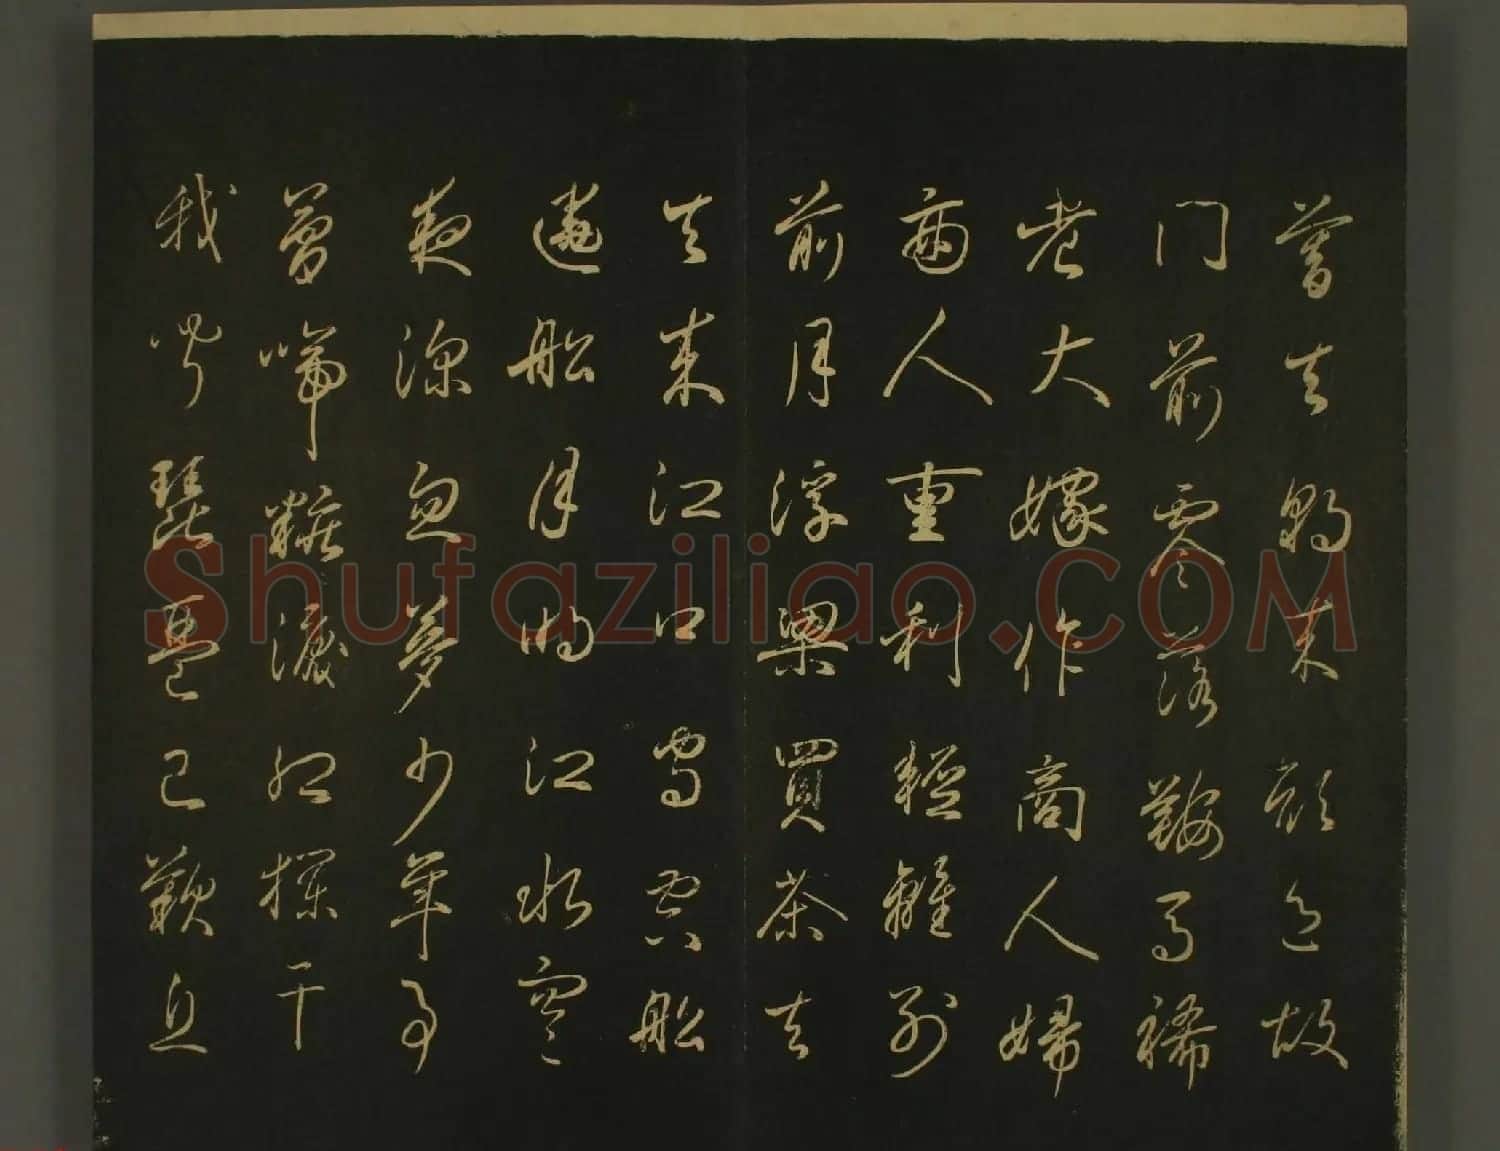 暮去朝来顔色故
门前零落鞍马稀
老大嫁作商人婦
商人重利輕離别
前月浮梁買茶去
去来江口守空船
遶船月明江水寒
夜深忽夢少年事
夢啼粧淚紅闌干
我聞琵琶已歎息
Shufaziliao.COM